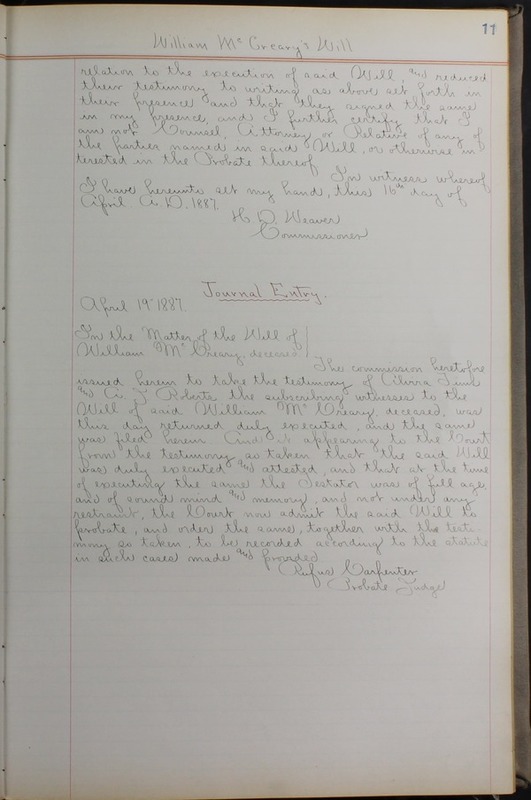 11
William Mc Creary's Will
relation to the execution of said Will, and reduced
their testimony to writing as above set forth in
their presence and that they signed the same
in my presence, and I further certify that I
am not Counsel, Attorney or Relative of any of
the parties named in said Will, or otherwise in
terested in the Probate thereof
In witness whereof
I have hereunto set my hand, this 16th day of
April A.D. 1887.
H. D. Weaver
Commissioner
Journal Entry.
April 19 1887.
In the Matter of the Will of
William Mc Creary, deceased
The commission heretofore
issued herein to take the testimony of
and A. J. Roberts the subscribing witnesses to the
Will of said William Mc Creary, deceased, was
this day returned duly executed, and the same
was filed herein And it appearing to the Court
from the testimony so taken that the said Will
was duly executed and attested, and that at the time
of executing the same the Testator was of full age,
and of sound mind and memory, and not under any
restraint, the Court now admit the said Will to
probate, and order the same, together with the testi-
mony so taken, to be recorded according to the statute
in such cases made and provided
Rufus Carpenter
Probate Judge